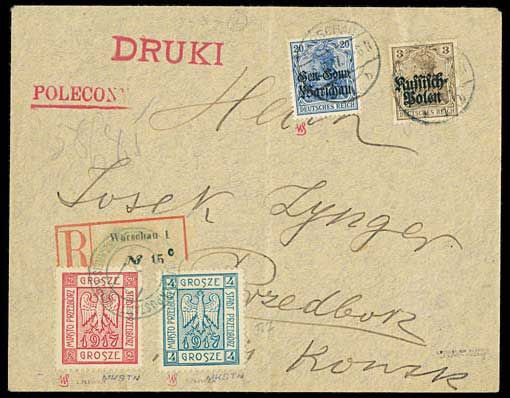 DRUKI
POLECONY
20 20
Gen.-Gouv.
Warschau
DEUTSCHES REICH
3 3
Russisch-
Polen
DEUTSCHES REICH
Herrn
Josek Zynger
R
Warschau 1
№ 15 c
Przedborz
Konsk
GROSZE
MIASTO PRZEDBÓRZ
1917
GROSZE
4 GROSZE 4
MIASTO PRZEDBÓRZ
1917
4 GROSZE 4
MKSTN
MKSTN